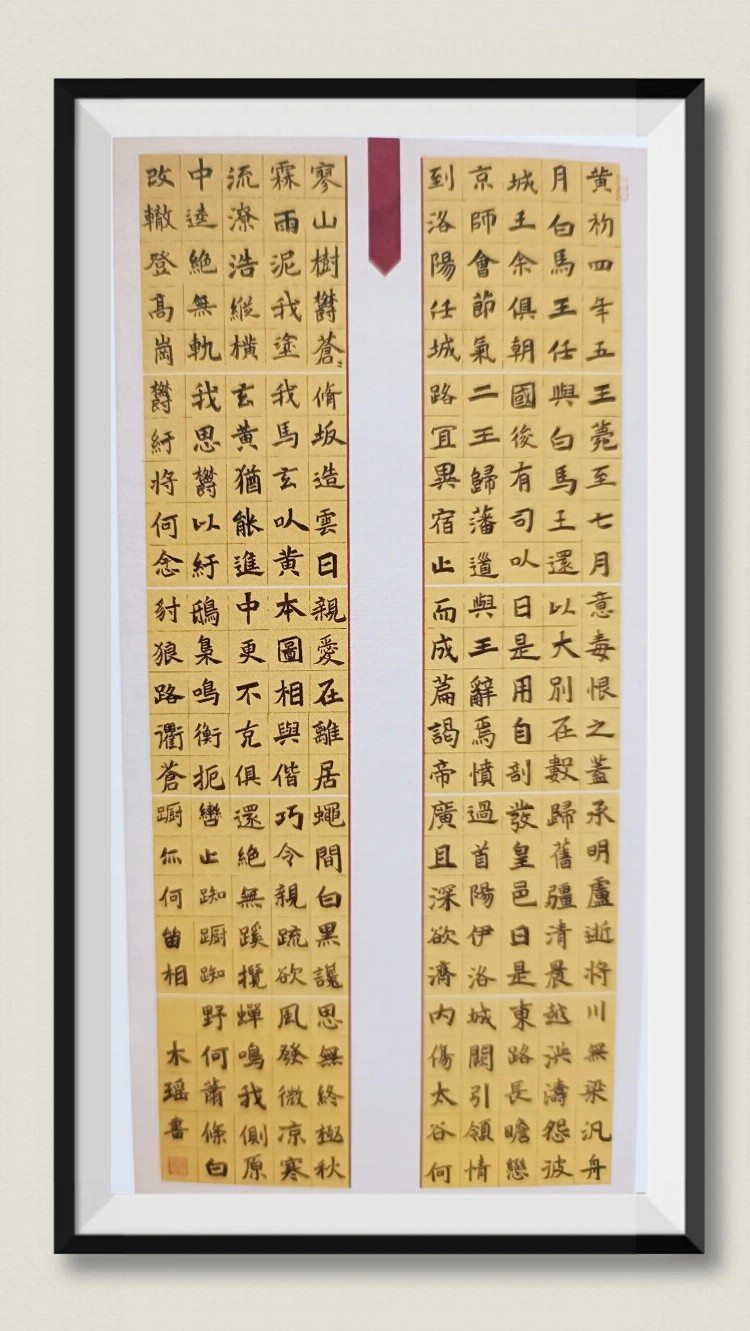 黄初四年五
月白馬王任
城王余俱朝
京師會節氣
到洛陽任城
王薨至七月
與白馬王還
國後有司以
二王歸藩道
路宜異宿止
意毒恨之蓋
以大別在數
日是用自剖
與王辭焉憤
而成篇謁帝
承明廬逝將
歸舊疆清晨
發皇邑日是
過首陽伊洛
廣且深欲濟
川無梁汎舟
越洪濤怨彼
東路長瞻戀
城闕引領情
内傷太谷何
寥山樹鬱蒼
霖雨泥我塗
流潦浩縱横
中逵絶無軌
改轍登高崗
脩坂造雲日
我馬玄以黄
玄黄猶能進
我思鬱以紆
鬱紆將何念
親愛在離居
本圖相與偕
中更不克俱
鴟梟鳴衡扼
豺狼路衢蒼
蠅間白黑讒
巧令親疏欲
還絶無蹊攬
轡止踟躕踟
躕亦何留相
思無終極秋
風發微凉寒
蟬鳴我側原
野何蕭條白
木瑶書